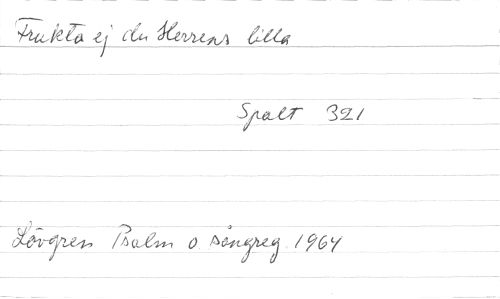 Frukta ej du Herrens lilla
Spalt 321
Lövgren Psalm o sångreg. 1964